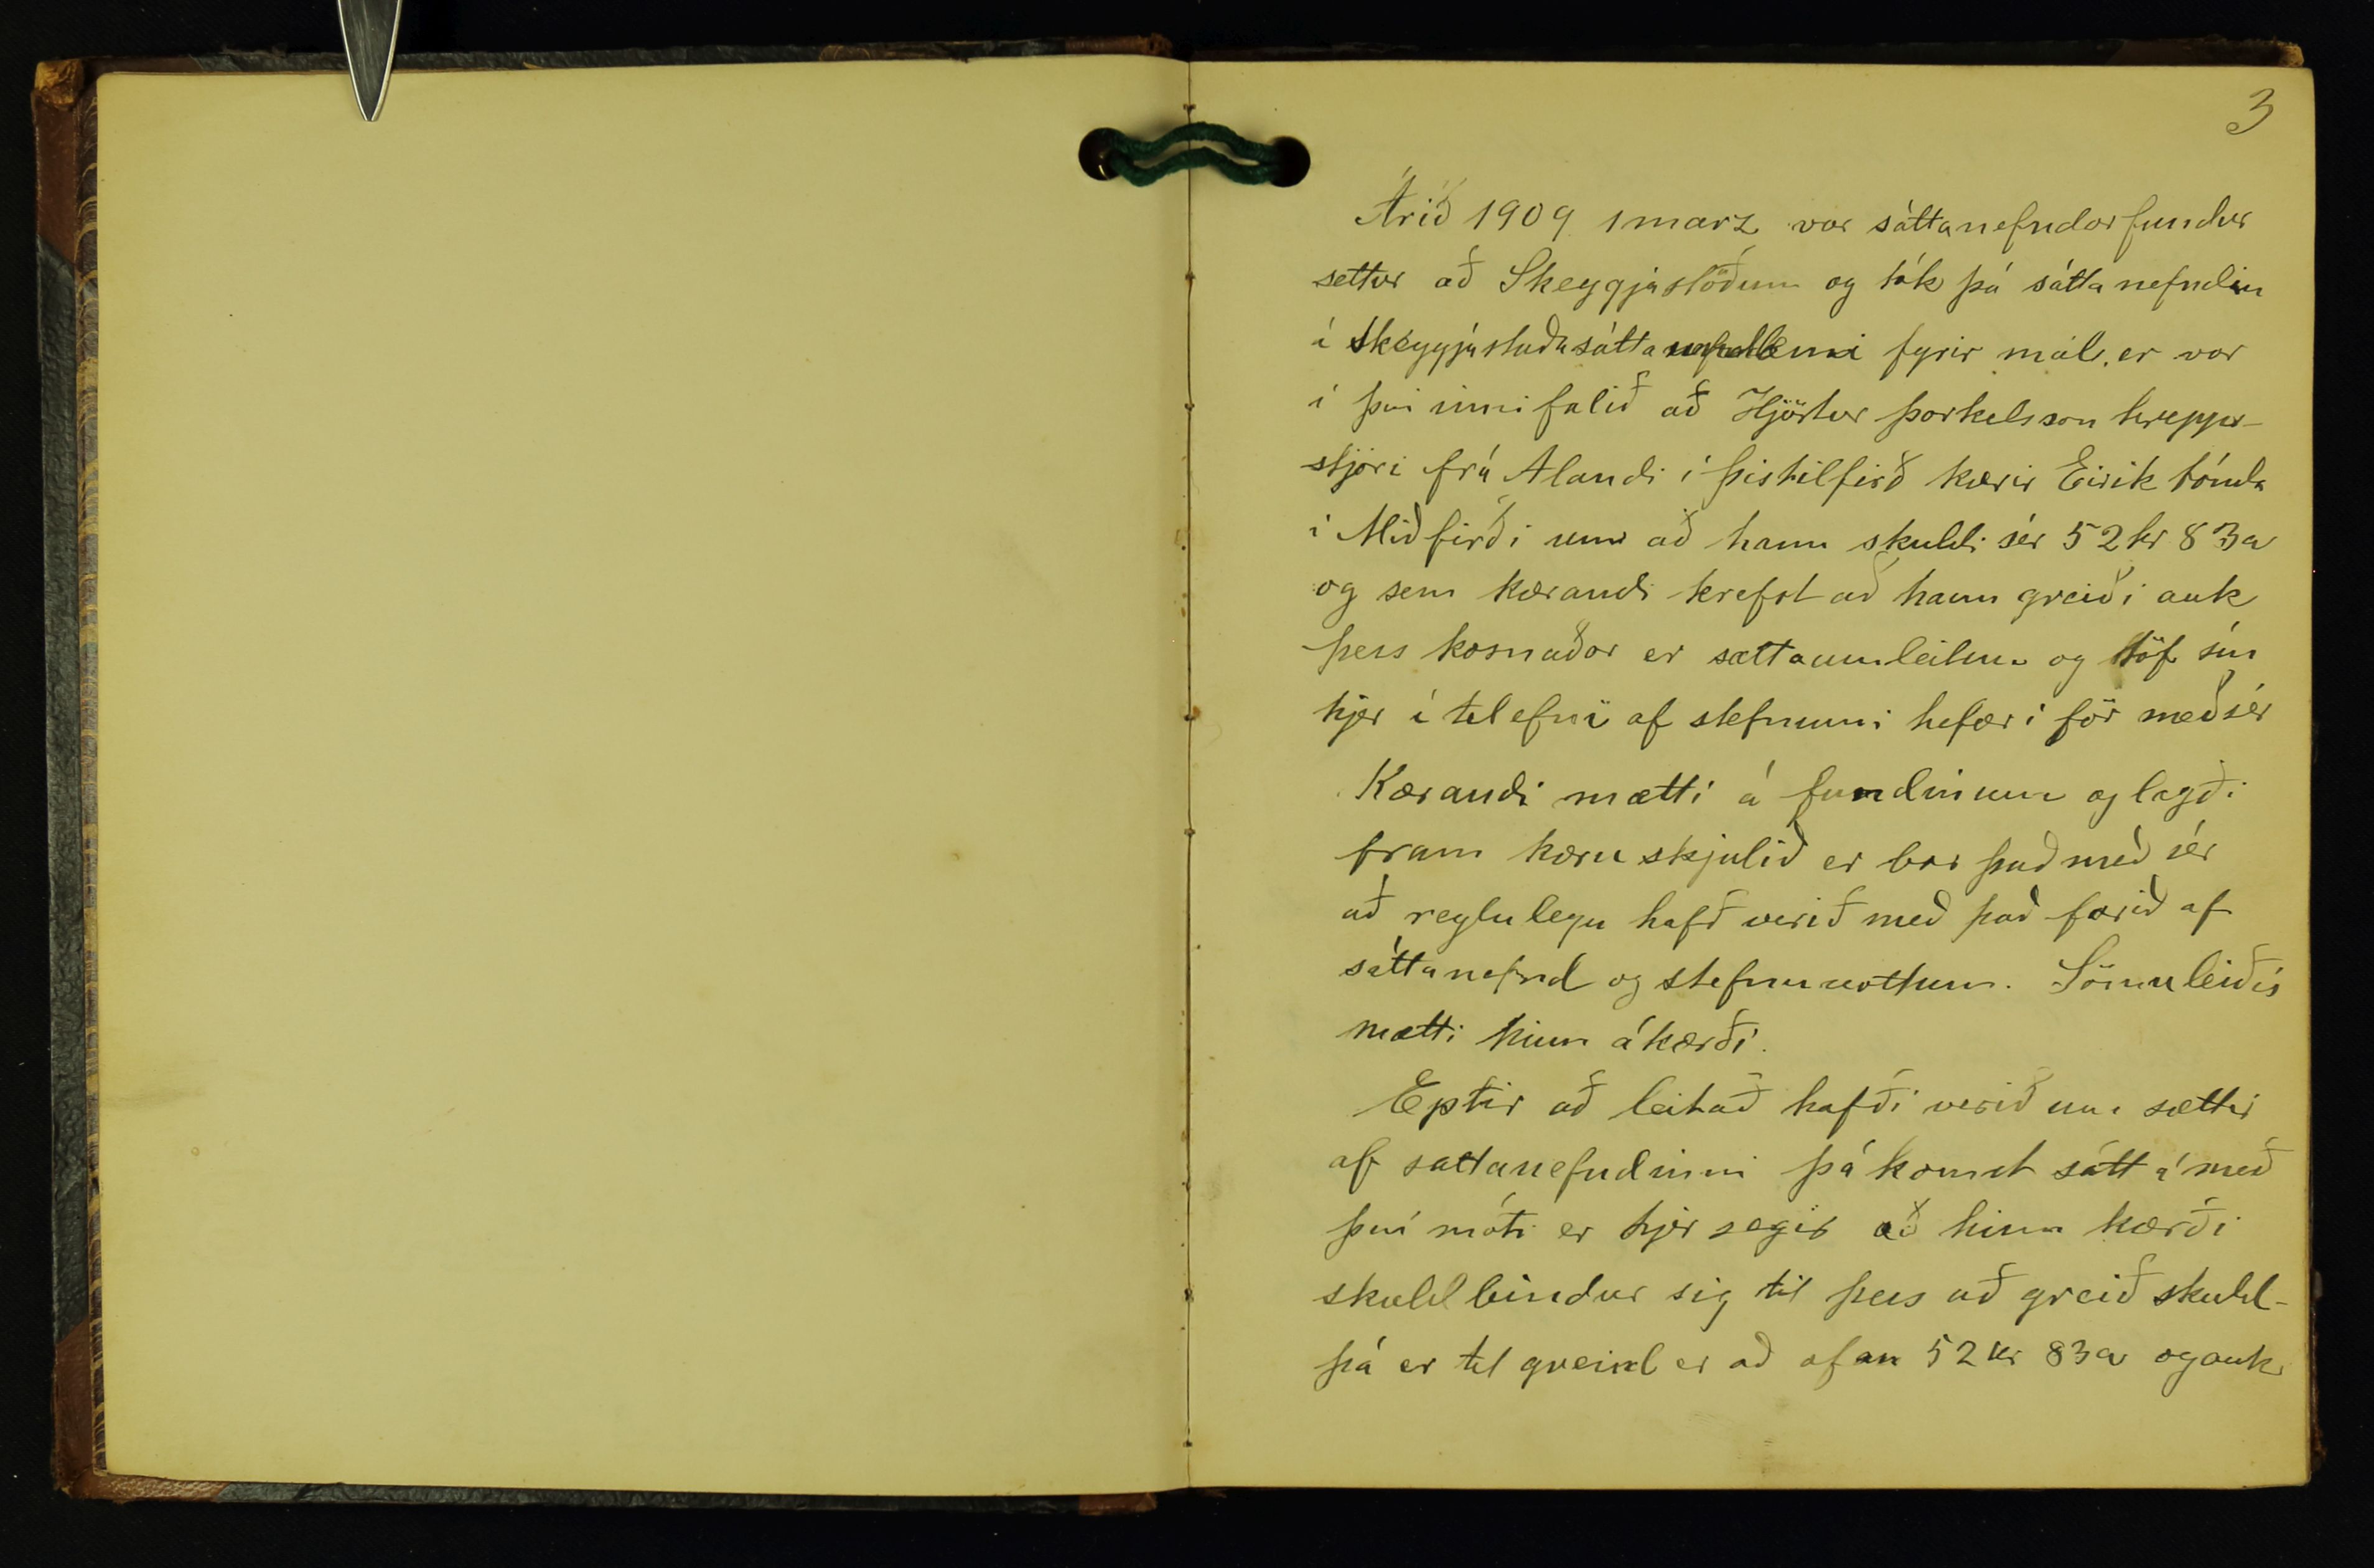 3
Árið 1909 1 marz var sáttanefndarfundur
settur að Skeggjastöðum og tók þá sáttanefndin
í Skeggjastaðasátta fyrir mál, er var
í því innifalið að Hjörtur Þorkelsson hrepp-
stjóri frá Alandi í Þistilfirð kærir Eirik bónda
í Miðfirði um að hann skuldi sér 52 kr 83 a
og sem kærandi krefst að hann greiði auk
þess kosnaðar er sættaumleitun og töf sín
hjer í tilefni af stefnunni hefar í för með sér
Kærandi mætti á fundinum og lagði
fram kæru skjalið er bar það með sér
að reglulega hafð verið með það farið af
sáttanefnd og stefnuvottum. Sömuleiðis
mætti hinn ákærði.
Eptir að leitað hafði verið um sættir
af sattanefndinni þá komst sátt á með
því móti er hjer segir að hinn kærði
skuldbindur sig til þess að greið skuld-
þá er til greind er að ofan 52 kr 83 a og auk